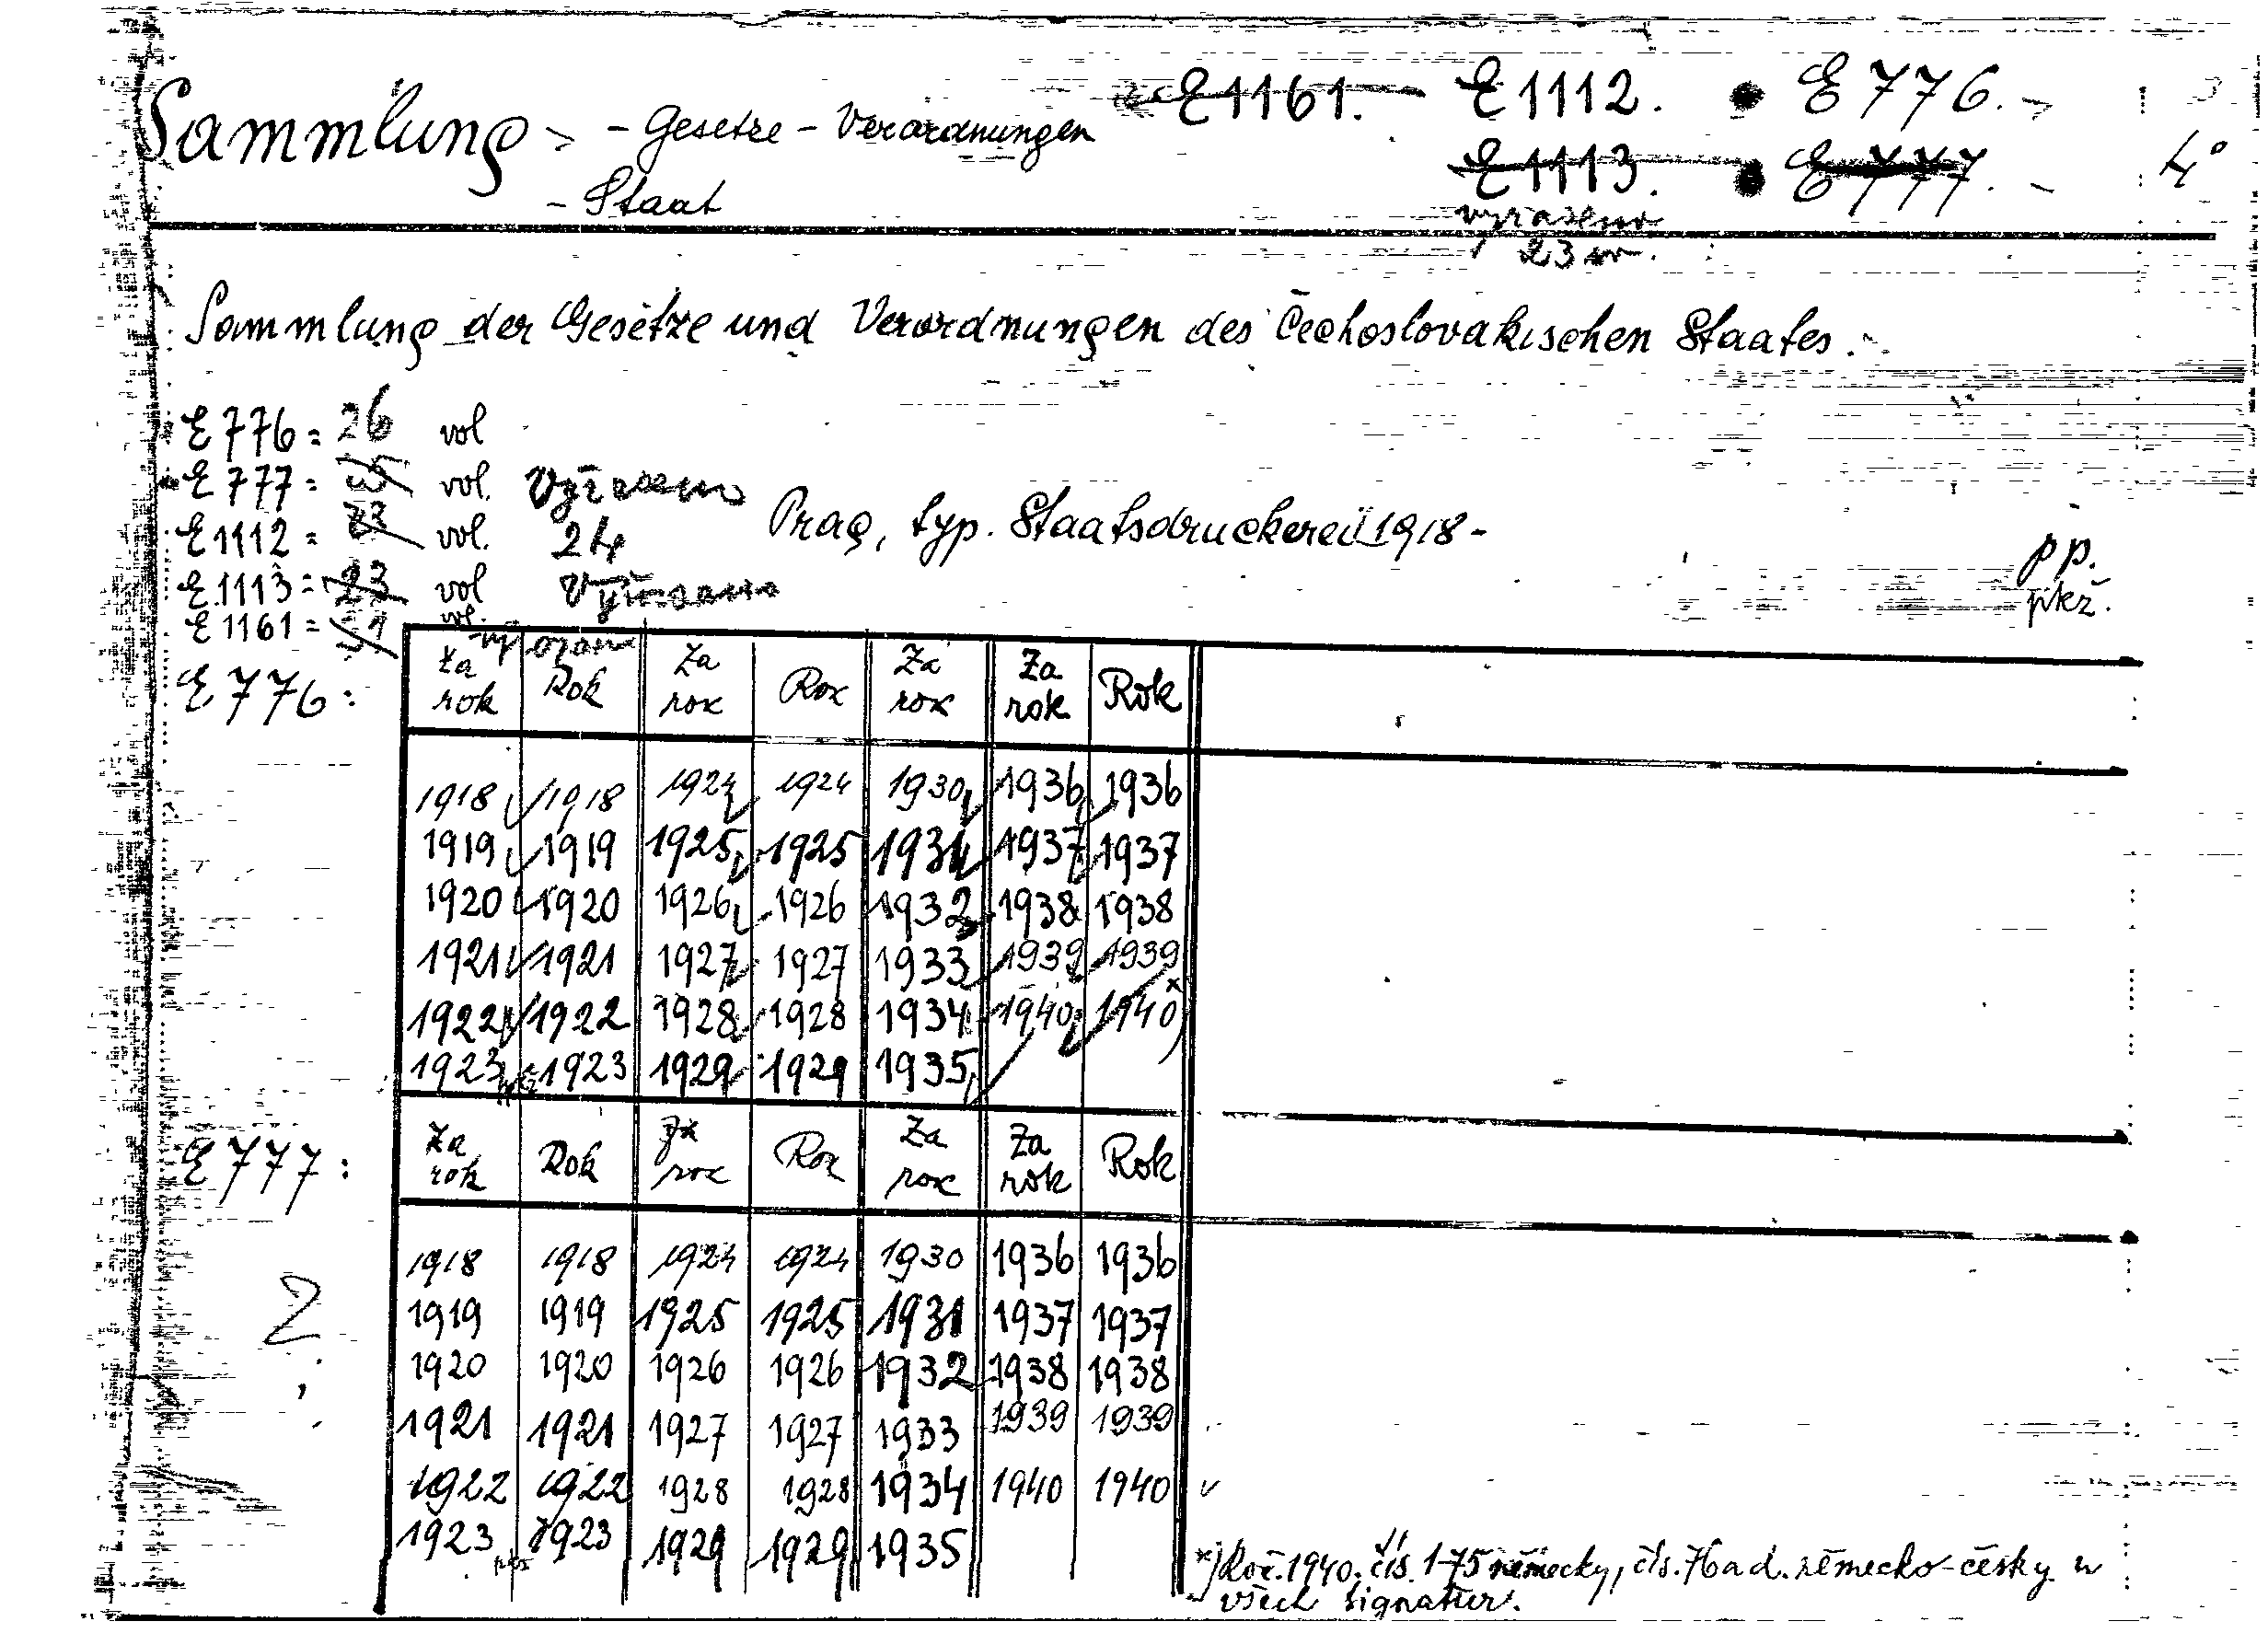 Sammlung - Gesetze - Verordnungen E1161. E1112. E776.
- Staat E1113. E777. 4°
vyřazeno
23
Sammlung der Gesetze und Verordnungen des Čechoslovakischen Staates.
E776 = 26 vol
E777 = vol. Vyřazeno
Prag, typ. Staatsdruckerei 1918-
E1112 = 23 vol. 24
pp.
E1113 = 23 vol Vyřazeno
E1161 = vol.
E776: Za rok Rok Za rok Rok Za rok Za rok Rok
1918 1918 1924 1924 1930 1936 1936
1919 1919 1925 1925 1931 1937 1937
1920 1920 1926 1926 1932 1938 1938
1921 1921 1927 1927 1933 1939 1939
1922 1922 1928 1928 1934 1940 1940 x)
1923 1923 1929 1929 1935
E777: Za rok Rok Za rok Rok Za rok Za rok Rok
1918 1918 1924 1924 1930 1936 1936
1919 1919 1925 1925 1931 1937 1937
1920 1920 1926 1926 1932 1938 1938
1921 1921 1927 1927 1933 1939 1939
1922 1922 1928 1928 1934 1940 1940
1923 1923 1929 1929 1935
x) Roč. 1940. čís. 1-75 německy, čís. 76 a d. německo-česky u
všech signatur.